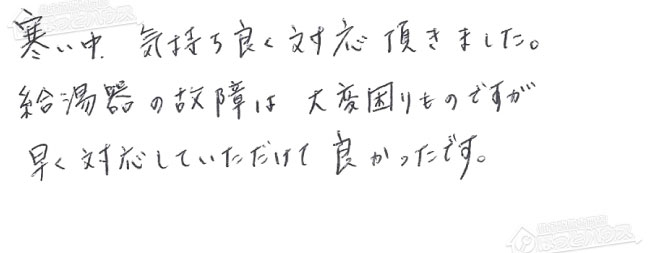 寒い中 気持ち良く対応頂きました。
給湯器の故障は 大変困りものですが
早く対応していただけて 良かったです。